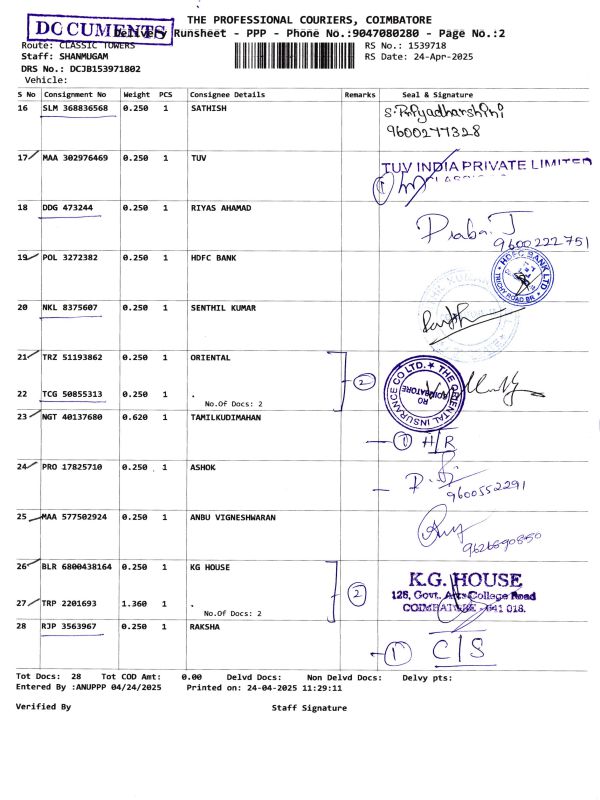 THE PROFESSIONAL COURIERS, COIMBATORE
DOCUMENTS
Delivery Runsheet - PPP - Phone No.:9047080280 - Page No.:2
Route: CLASSIC TOWERS RS No.: 1539718
Staff: SHANMUGAM RS Date: 24-Apr-2025
DRS No.: DCJB153971802
Vehicle:
S No Consignment No Weight PCS Consignee Details Remarks Seal & Signature
16 SLM 368836568 0.250 1 SATHISH
S. Priyadharshini
9600277328
17 MAA 302976469 0.250 1 TUV
TUV INDIA PRIVATE LIMITED
1
18 DDG 473244 0.250 1 RIYAS AHAMAD
Praba. J
9600222751
19 POL 3272382 0.250 1 HDFC BANK
HDFC BANK LTD
TRICHY ROAD BR
20 NKL 8375607 0.250 1 SENTHIL KUMAR
21 TRZ 51193862 0.250 1 ORIENTAL
2
THE ORIENTAL INSURANCE CO LTD.
RO
COIMBATORE
22 TCG 50855313 0.250 1 .
No.Of Docs: 2
23 NGT 40137680 0.620 1 TAMILKUDIMAHAN
1 H/R
24 PRO 17825710 0.250 1 ASHOK
9600552291
25 MAA 577502924 0.250 1 ANBU VIGNESHWARAN
9626690850
26 BLR 6800438164 0.250 1 KG HOUSE
2
K.G. HOUSE
128, Govt. Arts College Road
COIMBATORE - 641 018.
27 TRP 2201693 1.360 1 .
No.Of Docs: 2
28 RJP 3563967 0.250 1 RAKSHA
1 C/S
Tot Docs: 28 Tot COD Amt: 0.00 Delvd Docs: Non Delvd Docs: Delvy pts:
Entered By :ANUPPP 04/24/2025 Printed on: 24-04-2025 11:29:11
Verified By Staff Signature